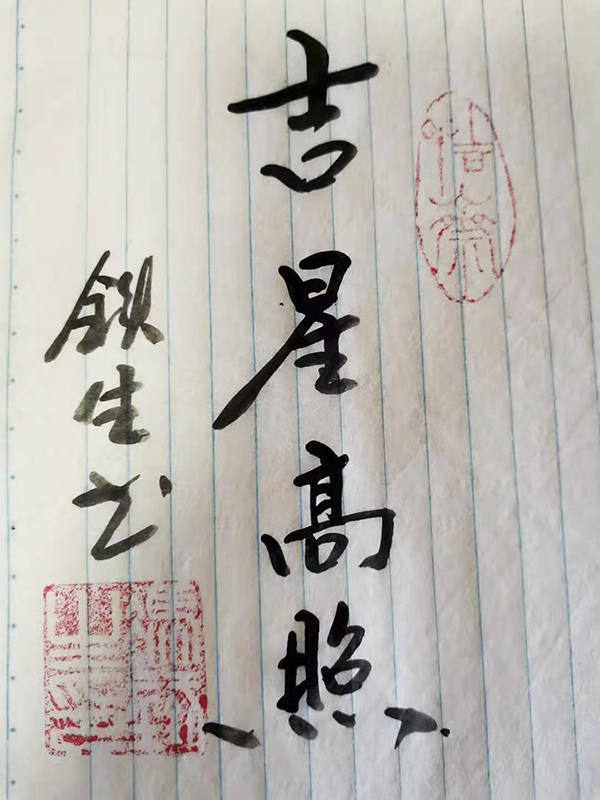 吉星高照
锁生书